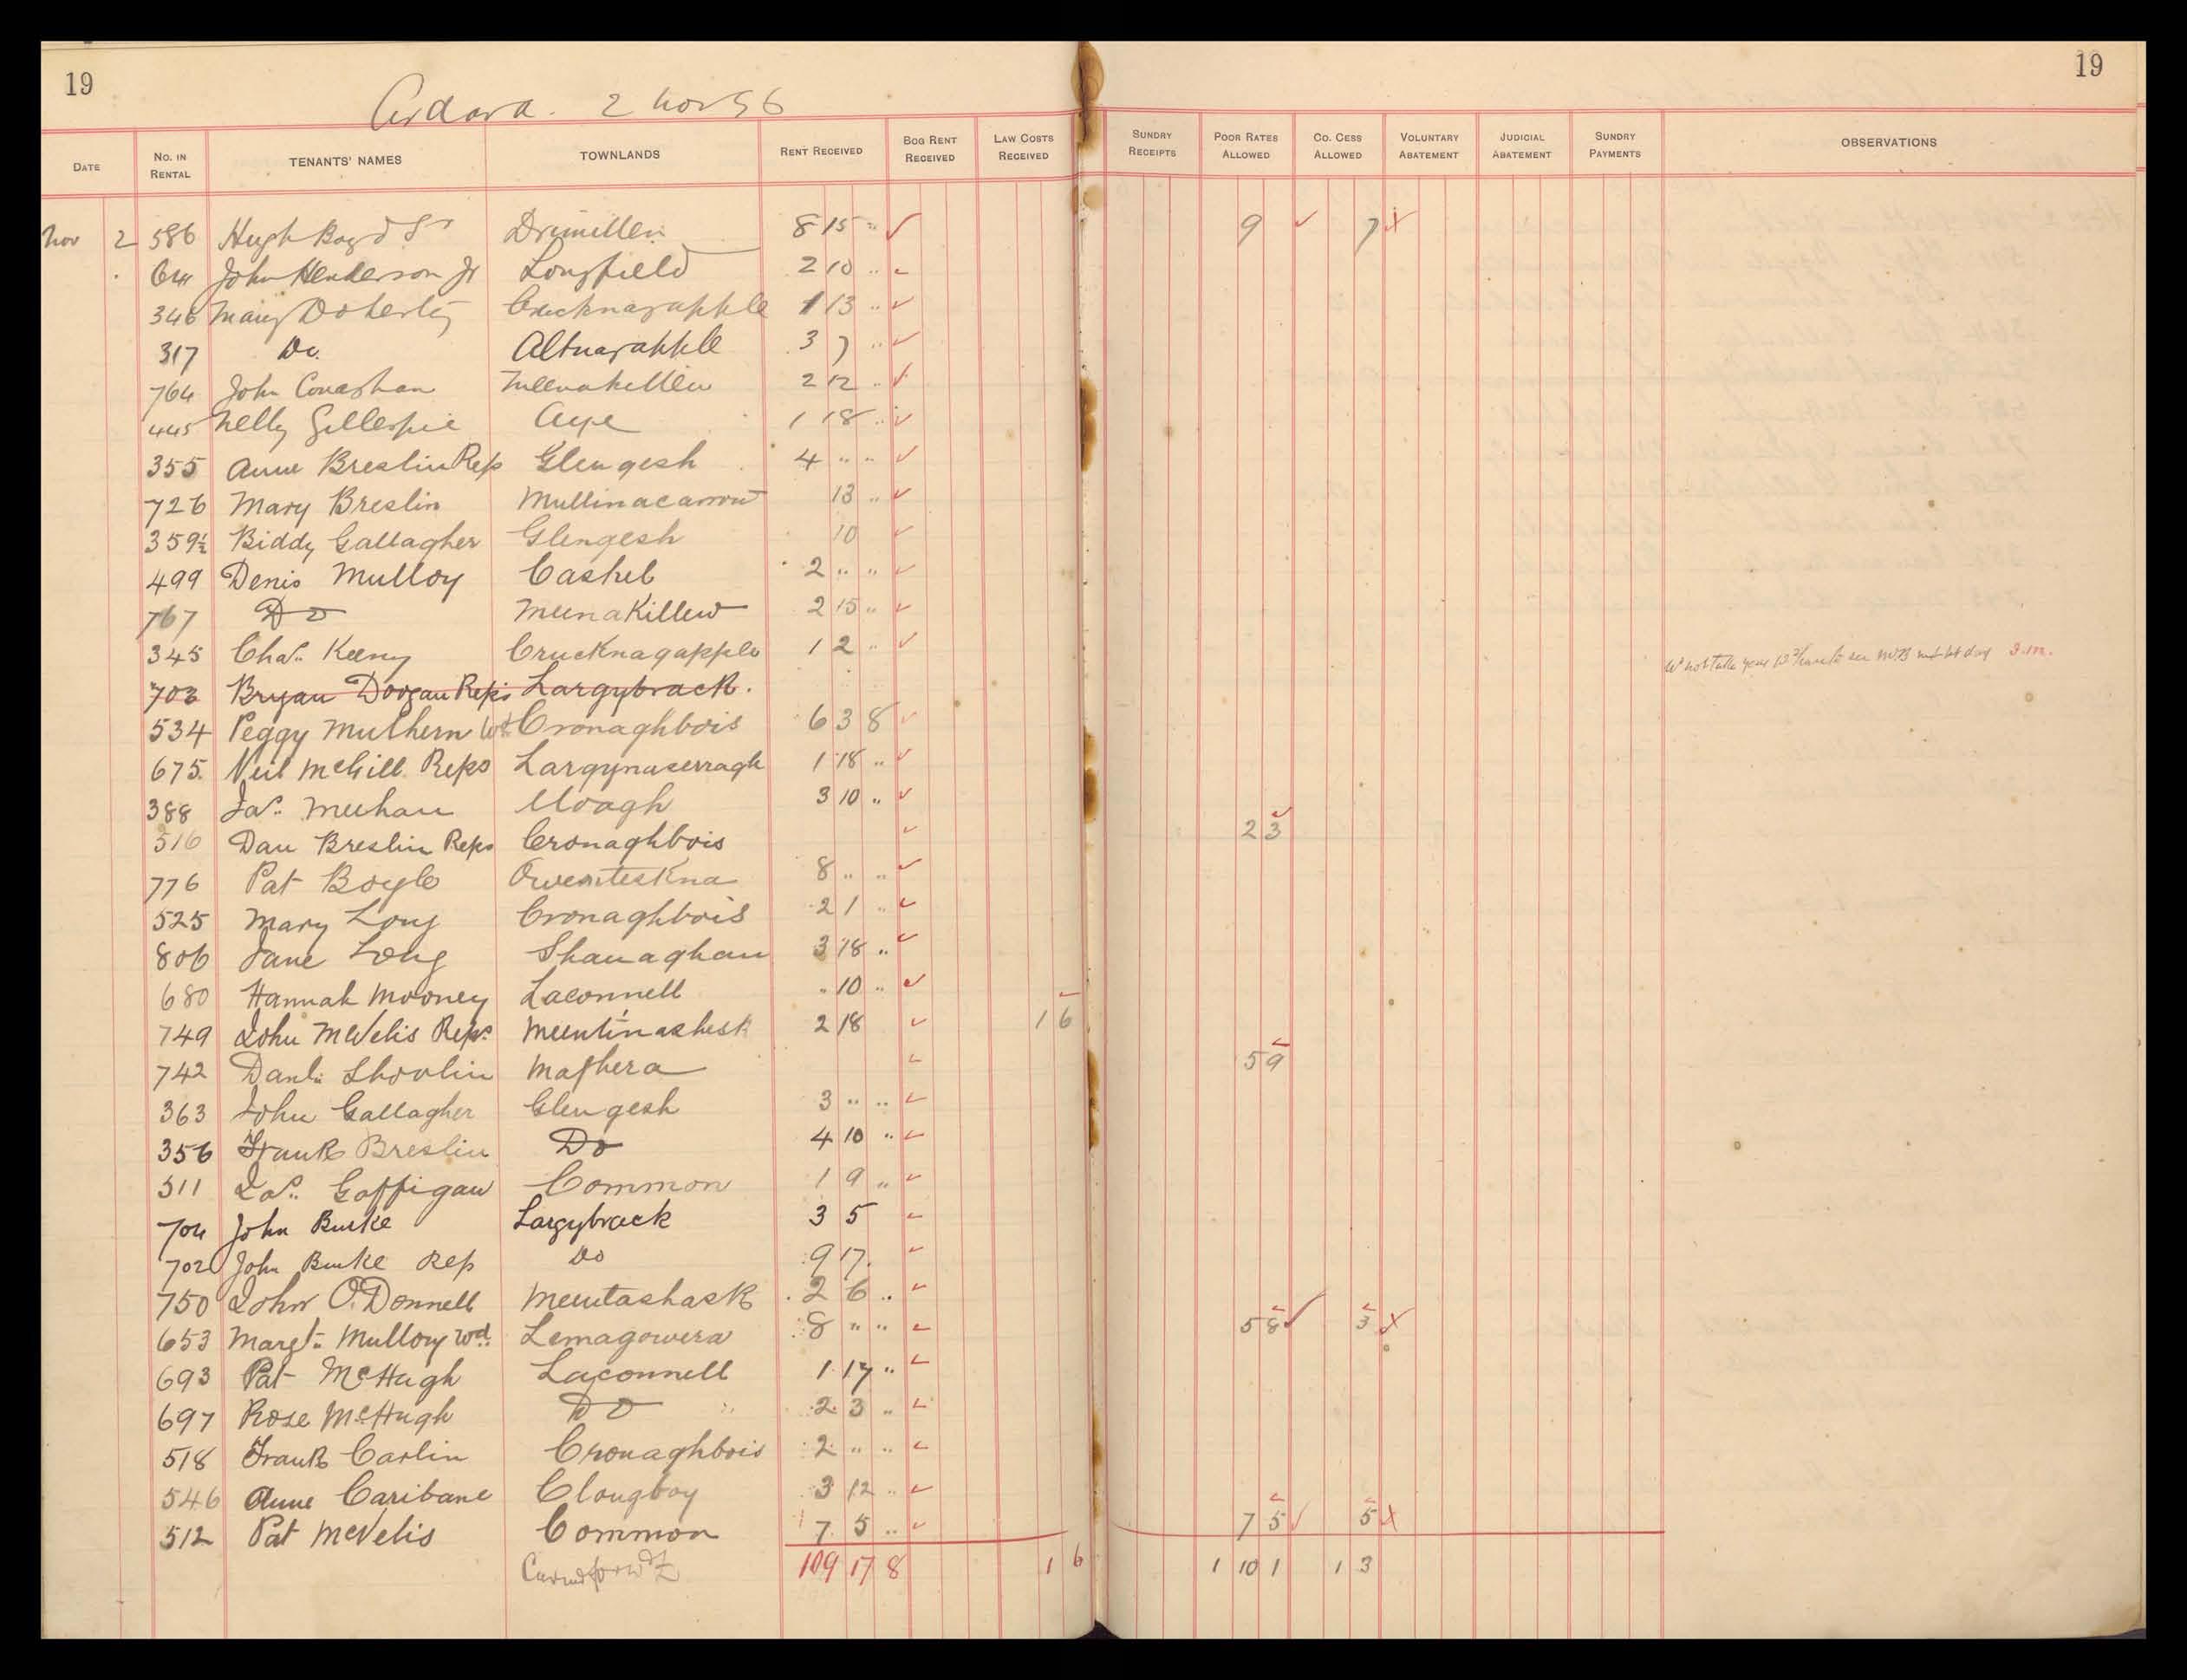 19 19
Ardara. 2 Nov 96
DATE NO. IN RENTAL TENANTS' NAMES TOWNLANDS RENT RECEIVED BOG RENT RECEIVED LAW COSTS RECEIVED SUNDRY RECEIPTS POOR RATES ALLOWED CO. CESS ALLOWED VOLUNTARY ABATEMENT JUDICIAL ABATEMENT SUNDRY PAYMENTS OBSERVATIONS
Nov 2 586 Hugh Boyd Sr 8 15 " 9 7
John Henderson Jr Longfield 2 10 "
346 Mary Doherty Crucknagapple 1 13 "
317 Do. Altnagapple 3 7 "
764 John Conaghan Meenakillew 2 12 "
445 Nelly Gillespie 1 18 "
355 Anne Breslin Reps Glengesh 4 " "
726 Mary Breslin Mullinacarrow 13 "
359½ Biddy Gallagher Glengesh 10
499 Denis Mulloy Cashel 2 " "
767 Do Meenakillew 2 15 "
345 Chas. Keeny Crucknagapple 1 2 "
703 Bryan Dorgan Reps Largybrack.
534 Peggy Mulhern Wd Cronaghbois 6 3 8
675. Neil McGill Reps Largynaserragh 1 18 "
388 Jas. Meehan Moagh 3 10 "
516 Dan Breslin Reps Cronaghbois 2 3
776 Pat Boyle Owenteskna 8 " "
525 Mary Long Cronaghbois 2 1 "
806 Jane Long Shanaghan 3 18 "
680 Hannah Mooney Laconnell 10 "
749 John McNelis Reps Meentinashesk 2 18 1 6
742 Danl. Shovlin Maghera 5 9
363 John Gallagher Glengesh 3 " "
356 Frank Breslin Do 4 10 "
511 Jas. Gaffigan Common 1 9 "
704 John Burke Largybrack 3 5
702 John Burke Rep Do 9 17.
750 John O'Donnell Meentashask 2 6 "
653 Margt. Mulloy Wd. Lemagowera 8 " " 5 8 3
693 Pat McHugh Laconnell 1 17 "
697 Rose McHugh Do 2 3 "
518 Frank Carlin Cronaghbois 2 " "
546 Anne Caribane Clougboy 3 12 "
512 Pat McNelis Common 7 5 " 7 5 5
109 17 8 1 6 1 10 1 1 3